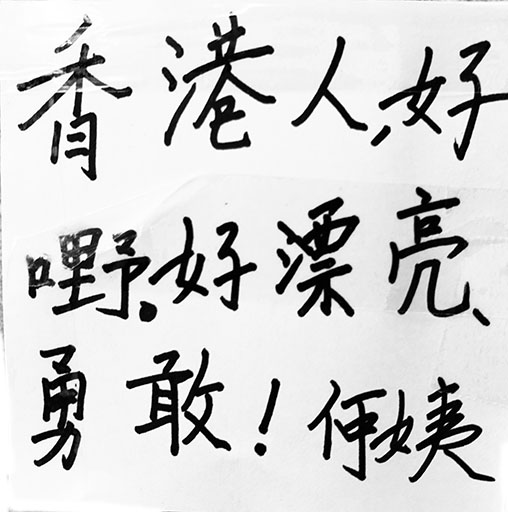 香港人,好
嘢.好漂亮、
勇敢!何姨